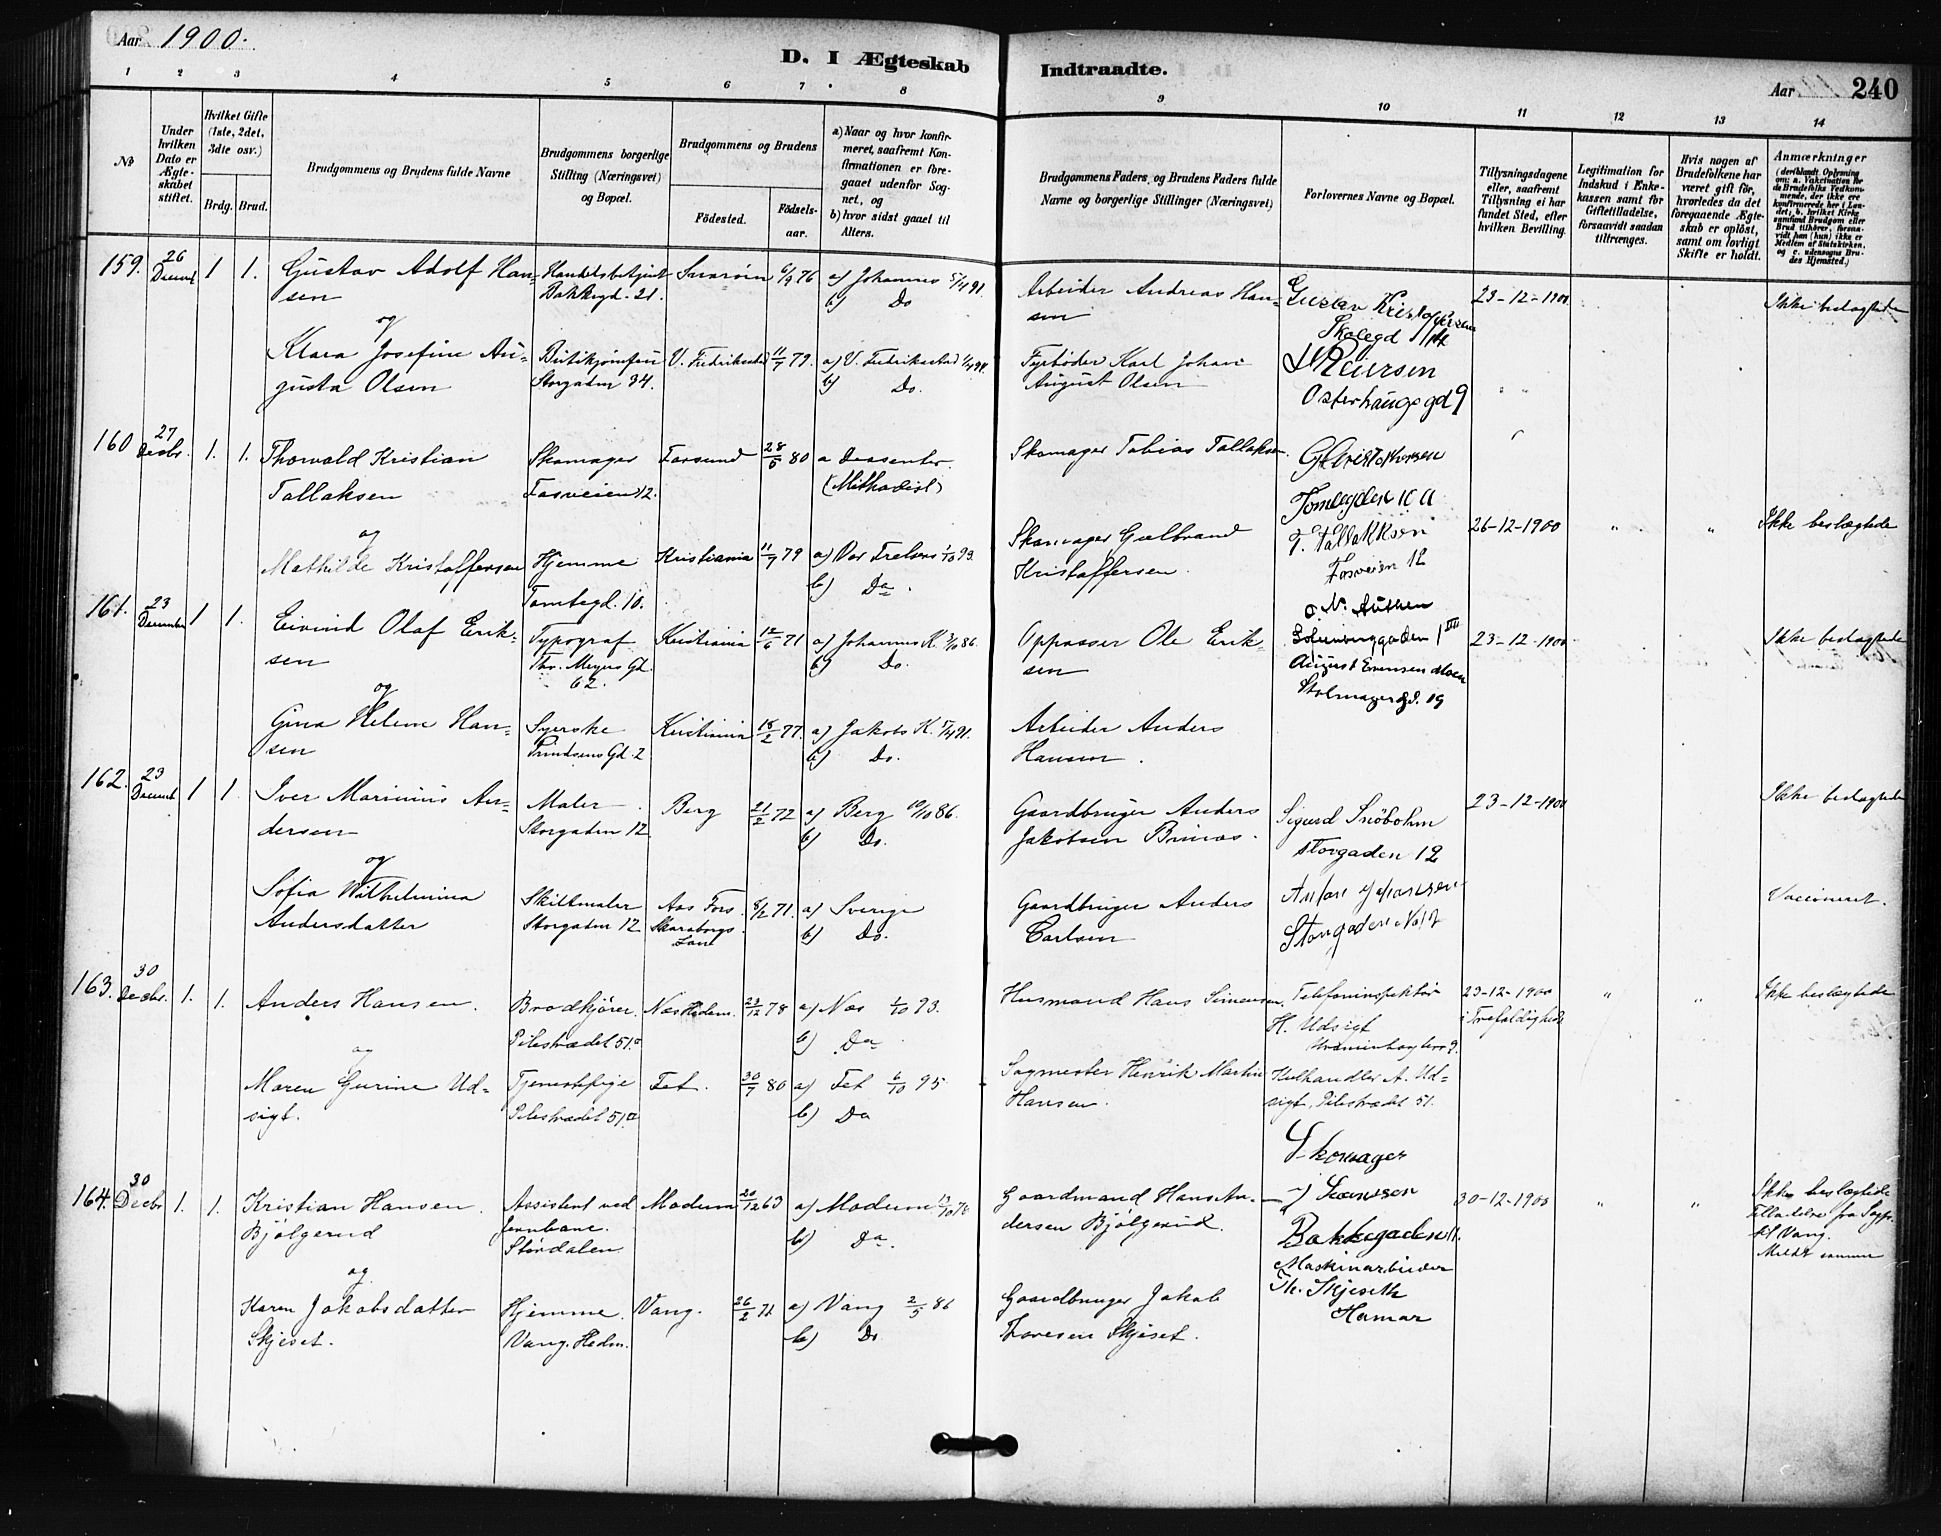 Aar 1900.
D. I Ægteskab
Indtraadte.
Aar 240
1 2 3 4 5 6 7 8
9 10 11 12 13 14
No
Under hvilken Dato er Ægteskabet stiftet.
Hvilket Gifte (1ste, 2det, 3die osv.)
Brdg. Brud.
Brudgommens og Brudens fulde Navne
Brudgommens borgerlige Stilling (Næringsvei) og Bopæl.
Brudgommens og Brudens
Fødested.
Fødsels-aar.
a) Naar og hvor konfirmeret, saafremt Konfirmationen er foregaaet udenfor Sognet, og
b) hvor sidst gaaet til Alters.
Brudgommens Faders, og Brudens Faders fulde Navne og borgerlige Stillinger (Næringsvei)
Forlovernes Navne og Bopæl.
Tillysningsdagene eller, saafremt Tillysning ei har fundet Sted, efter hvilken Bevilling.
Legitimation for Indskud i Enkekassen samt for Giftetilladelse, forsaavidt saadan tiltrænges.
Hvis nogen af Brudefolkene har været gift før, hvorledes da det foregaaende Ægteskab er opløst, samt om lovligt Skifte er holdt.
Anmærkninger
159. 26 Decemb 1 1. Gustav Adolf Han-
sen
Bakkegd. 21.
6/9 76 a) Johannes 5/4 91.
b) Do
Arbeider Andreas Han-
sen
Gustav Kristoffersen
Skolegd
23-12-1900
Ikke beslægtede
og
Klara Josefine Au-
gusta Olsen
Storgaden 34.
V. Fredrikstad 11/7 79. a) V. Fredrikstad
b) Do.
Fyrbøder Karl Johan
August Olsen
Osterhausgd 9
160 27 Decbr. 1. 1. Thorvald Kristian
Tallaksen
Skomager
Fosveien 12.
Farsund 28/5 80 a Dissenter.
(Methodist)
Skomager Tobias Tallaksen.
G Kristoffersen
Tomtegden 10 a
og
Mathilde Kristoffersen
Hjemme
Tomtegd. 10.
Kristiania 11/9 79 a) Vor Frelsers 1/10 93.
b) Do.
Skomager Gulbrand
Kristoffersen.
T. Tallakksen
Fosveien 12
26-12-1900 " " Ikke beslægtede
161. 23 December 1 1. Eivind Olaf Erik-
sen
Typograf
Thv. Meyers Gd
62.
Kristiania 12/6 71 a) Johannes K. 3/10 86.
b) Do.
Oppasser Ole Erik-
sen
O. N. Authen
August Evensen Moen
Stolmagergd. 19
23-12-1900
Ikke beslægtede
og
Gina Helene Han-
sen
Syerske
Prindsens Gd. 2
Kristiania 18/2 77. a) Jakobs K. 5/4 91.
b) Do.
Arbeider Anders
Hansen.
162. 23 Decemb 1 1. Iver Marinius An-
dersen
Maler
Storgaden 12
Berg 21/2 72 a) Berg 10/10 86.
b) Do.
Gaardbruger Anders
Jakobsen
Sigurd Snöbohm
Storgaden 12
23-12-1900
Ikke beslægtede
og
Sofia Wilhelmina
Andersdatter
Skiltmaler
Storgaden 12
Aas Fors
Skaraborgs
Læn
8/2 71. a) Sverige
b) Do.
Gaardbruger Anders
Carlsen
Storgaden No 12
Vaccineret.
163. 30 Decbr. 1. 1. Anders Hansen.
Brødkjører.
Pilestrædet 51.a
Næs Hedem. 23/12 78 a) Næs 1/10 93.
b) Do
Husmand Hans Simensen.
Telefoninspektør
H. Udsigt
23-12-1900
i Trefoldighed
" " Ikke beslægtede
og
Maren Gurine Ud-
sigt.
Tjenestepige
Pilestrædet 51.a
Fet. 30/7 80 a) Fet 6/10 95
b) Do
Sagmester Henrik Martin
Hansen.
Kulhandler A. Ud-
sigt, Pilestrædet 51.
164. 30 Decbr 1. 1. Kristian Hansen.
Bjølgerud
Assistent ved
Jernbane.
Størdalen
Modum 20/12 63 a) Modum
b) Do.
Gaardmand Hans An-
dersen Bjølgerud.
Skomager
Bakkegaden 11.
30-12-1900 " " Ikke beslægtede
Tilladelse fra Sogpr.
til Vang.
Meldt samme
og
Karen Jakobsdatter
Skjeset.
Hjemme.
Vang. Hedm.
Vang. 26/2 71 a) Vang 2/5 86
b) Do
Gaardbruger Jakob
Toresen Skjeset.
Maskinarbeider
Th. Skjeseth
Hamar